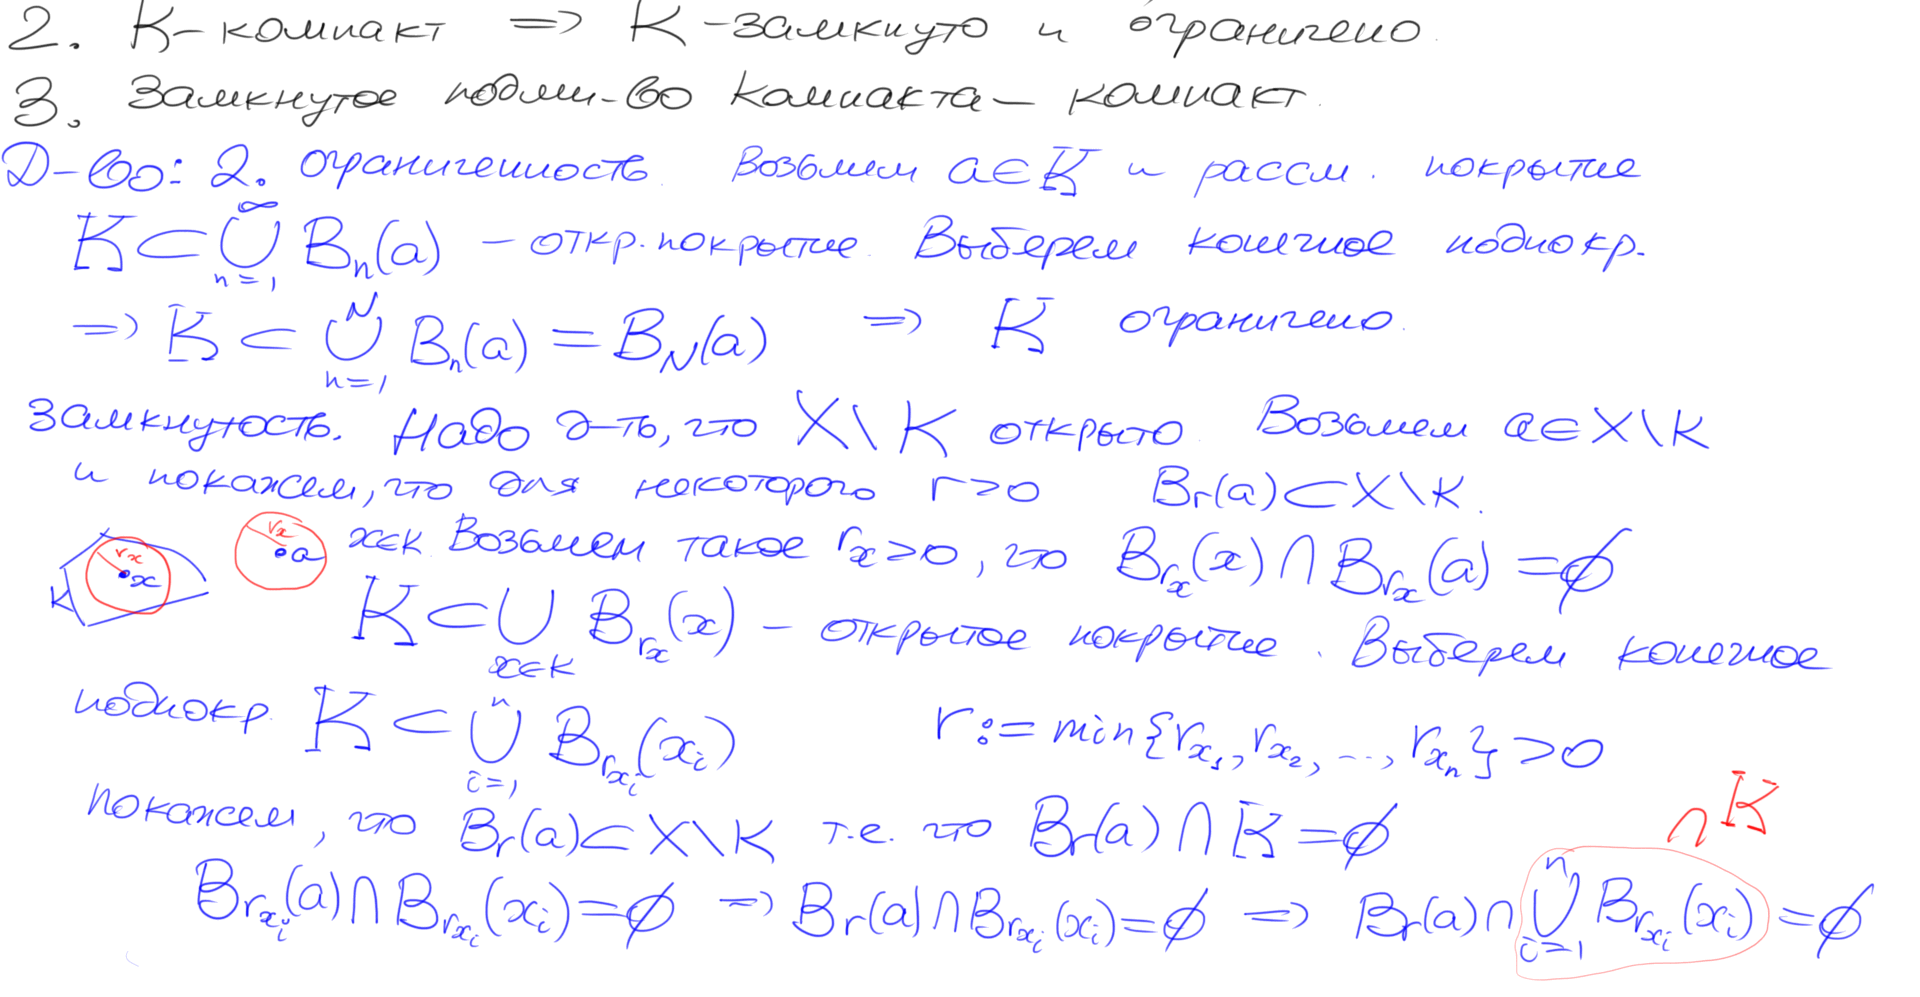 2. K – компакт ⇒ K – замкнуто и ограничено.
3. Замкнутое подмн-во компакта – компакт.
Д-во: 2. ограниченность. Возьмем a∈K и рассм. покрытие
K ⊂ ⋃_{n=1}^{∞} B_n(a) – откр. покрытие. Выберем конечное подпокр.
⇒ K ⊂ ⋃_{n=1}^{N} B_n(a) = B_N(a) ⇒ K ограничено.
Замкнутость. Надо д-ть, что X\K открыто. Возьмем a∈X\K
и покажем, что для некоторого r>0 B_r(a)⊂X\K.
r_x x K r_x a x∈K. Возьмем такое r_x>0, что B_{r_x}(x)∩B_{r_x}(a)=∅
K ⊂ ⋃_{x∈K} B_{r_x}(x) – открытое покрытие. Выберем конечное
подпокр. K ⊂ ⋃_{i=1}^{n} B_{r_{x_i}}(x_i) r:=min{r_{x_1}, r_{x_2}, ..., r_{x_n}}>0
покажем, что B_r(a)⊂X\K т.е. что B_r(a)∩K=∅ ∩ K
B_{r_{x_i}}(a)∩B_{r_{x_i}}(x_i)=∅ ⇒ B_r(a)∩B_{r_{x_i}}(x_i)=∅ ⇒ B_r(a)∩⋃_{i=1}^{n} B_{r_{x_i}}(x_i)=∅